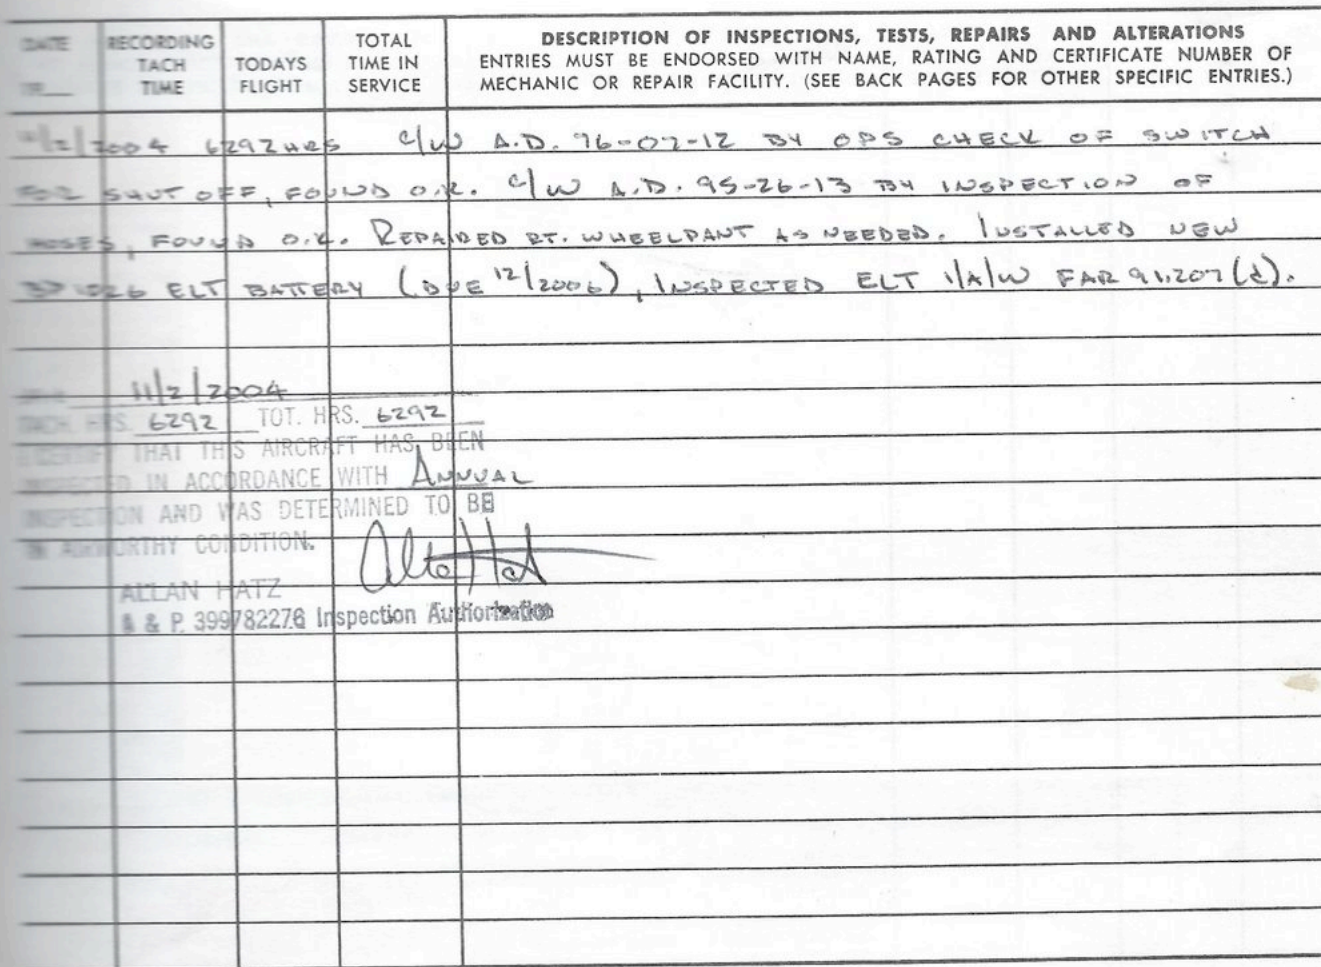 DATE RECORDING TACH TIME TODAYS FLIGHT TOTAL TIME IN SERVICE
DESCRIPTION OF INSPECTIONS, TESTS, REPAIRS AND ALTERATIONS
ENTRIES MUST BE ENDORSED WITH NAME, RATING AND CERTIFICATE NUMBER OF
MECHANIC OR REPAIR FACILITY. (SEE BACK PAGES FOR OTHER SPECIFIC ENTRIES.)
11/2/2004 6292 HRS C/W A.D. 76-07-12 BY OPS CHECK OF SWITCH
FOR SHUT OFF, FOUND O.K. C/W A.D. 95-26-13 BY INSPECTION OF
HOSES, FOUND O.K. REPAIRED RT. WHEELPANT AS NEEDED. INSTALLED NEW
ELT BATTERY (DUE 12/2006), INSPECTED ELT I/A/W FAR 91.207(d).
11/2/2004
TACH HRS. 6292 TOT. HRS. 6292
I CERTIFY THAT THIS AIRCRAFT HAS BEEN
INSPECTED IN ACCORDANCE WITH ANNUAL
INSPECTION AND WAS DETERMINED TO BE
IN AIRWORTHY CONDITION.
ALLAN HATZ
A & P. 399782276 Inspection Authorization